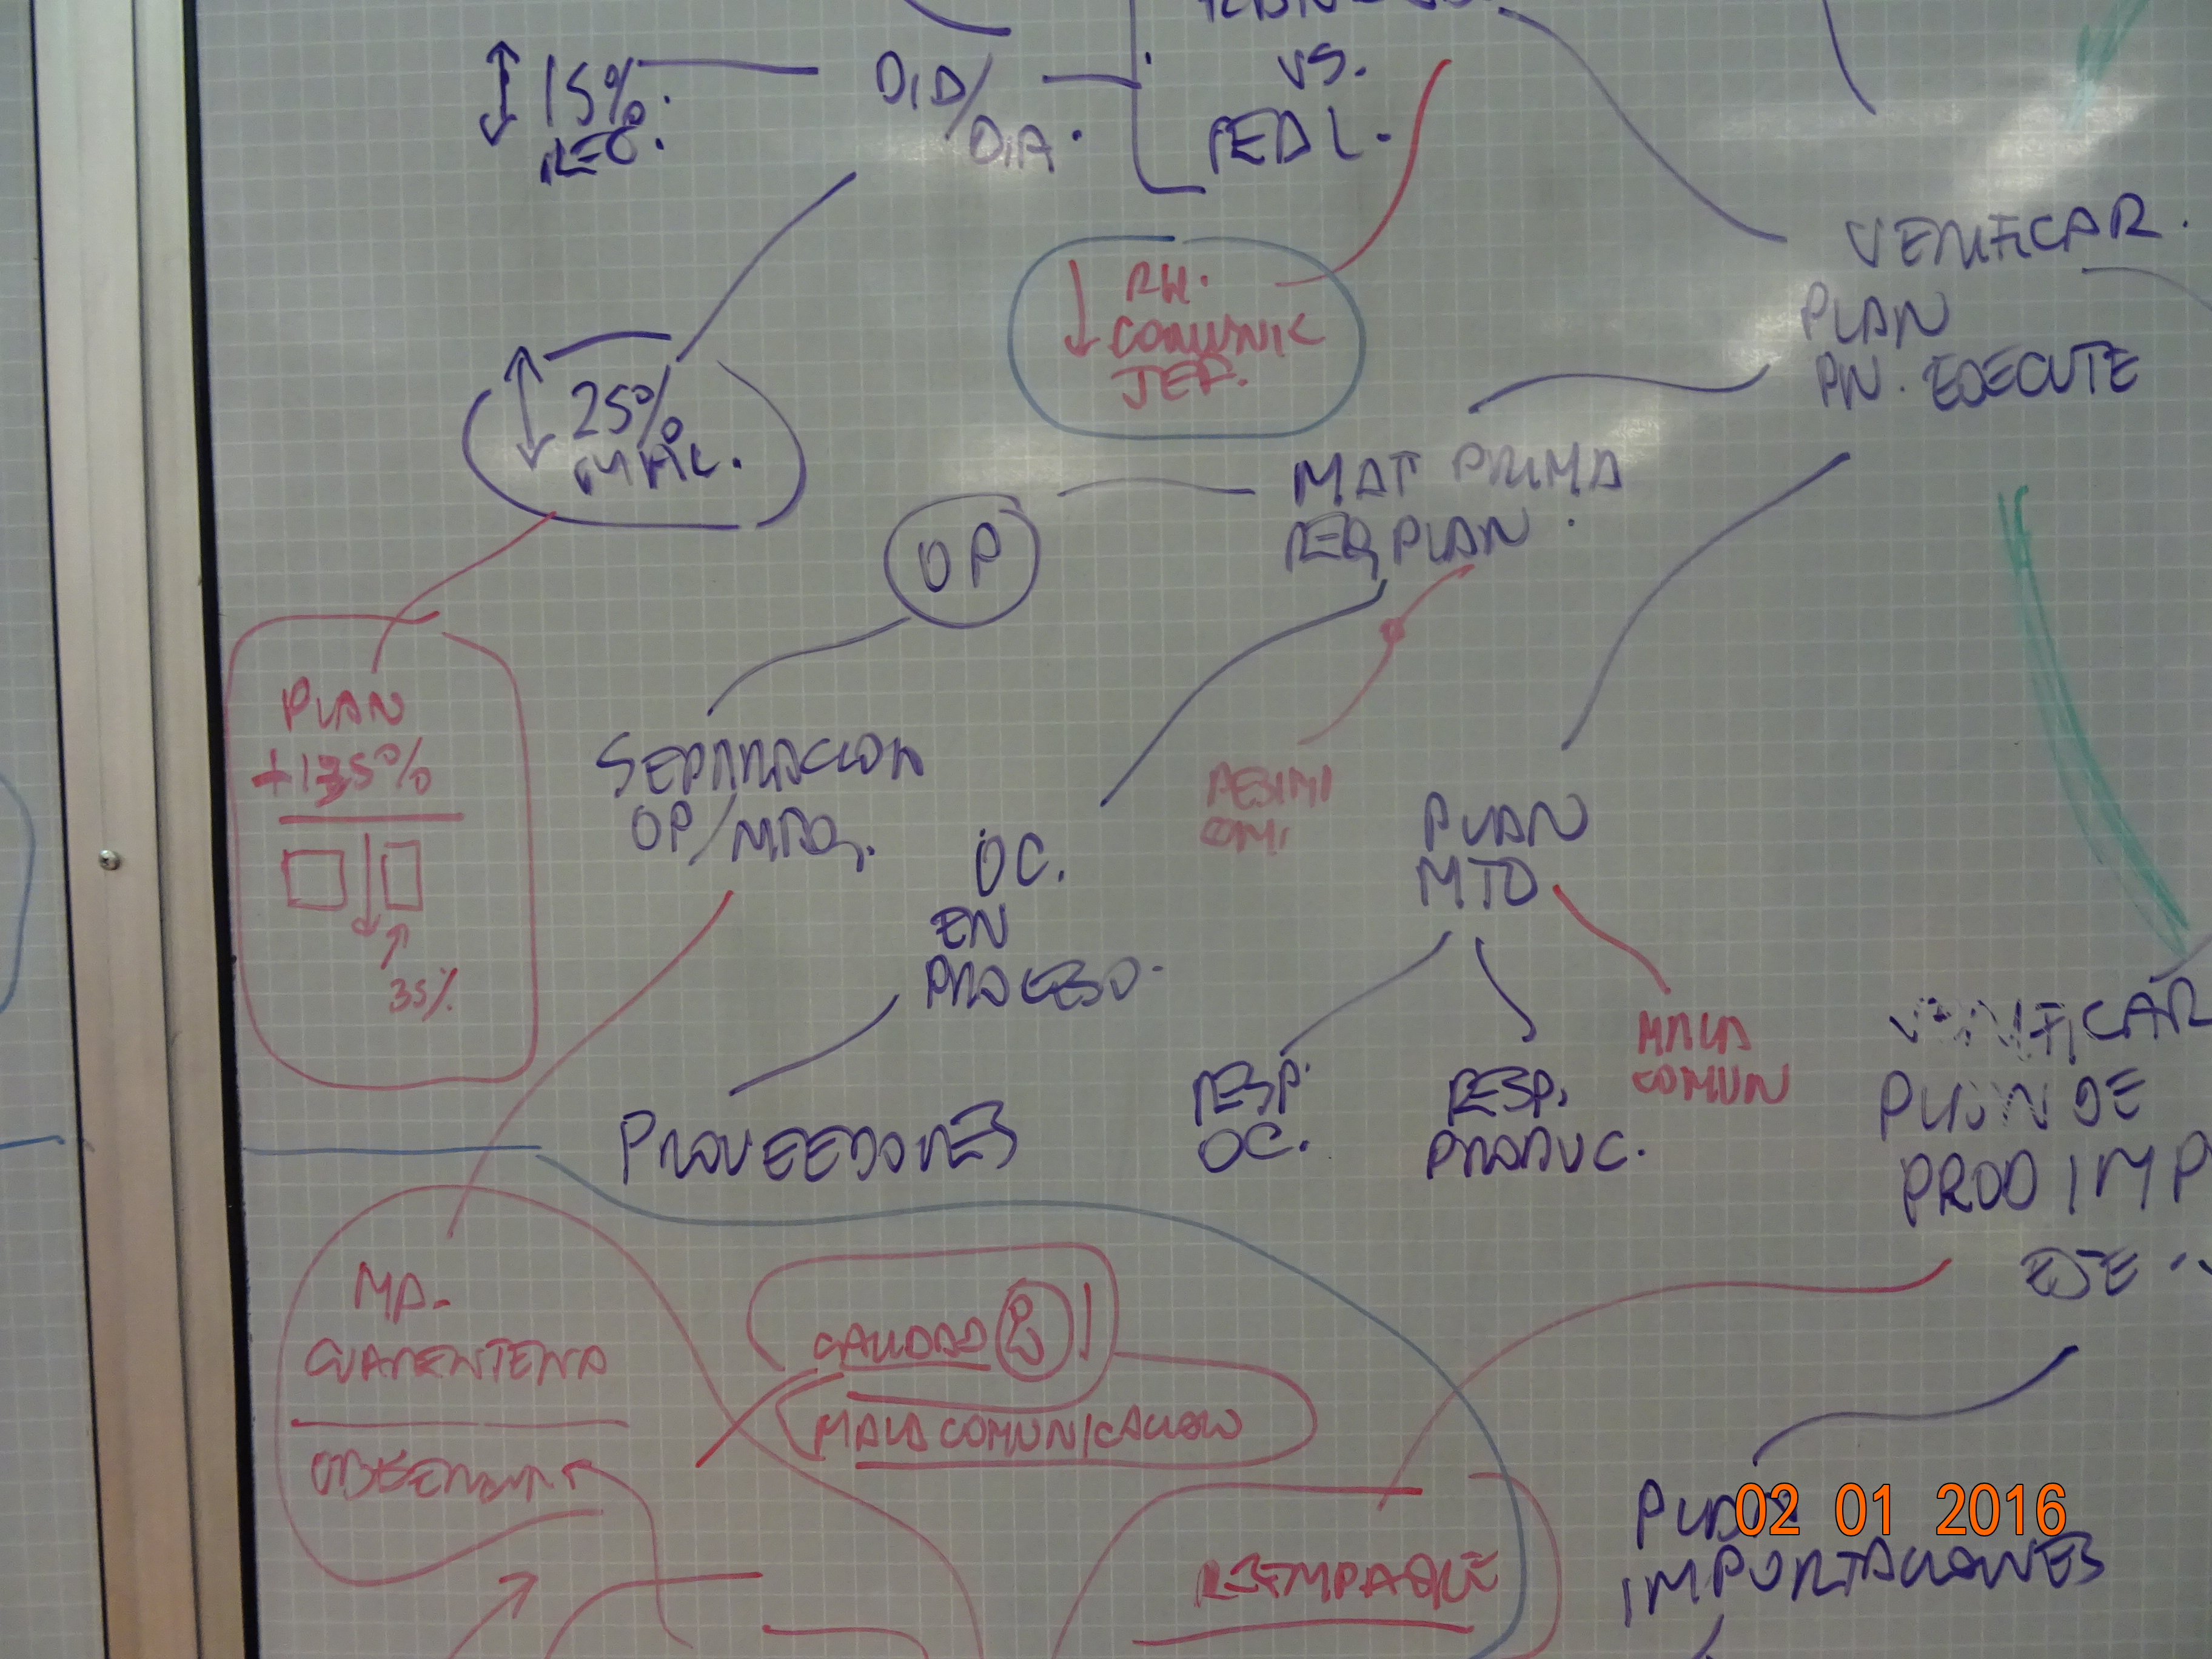 15%.
REC.
DID/
DIA.
VS.
PEDI.
VERIFICAR.
PLAN
PN. EJECUTE
RH.
COMUNIC
JEF.
25%
MAT PRIMA
REQ PLAN.
OP
PLAN
35%
SEPARACION
OP/MAQ.
OC.
EN
PROCESO.
PROVEEDORES
PLAN
MTO
RESP.
OC.
RESP.
PRODUC.
MALA
COMUN
VERIFICAR
PLAN DE
PROD IMP
EJE
MP.
CUARENTENA
CALIDAD
MALA COMUNICACION
REEMPAQUE
IMPORTACIONES
02 01 2016